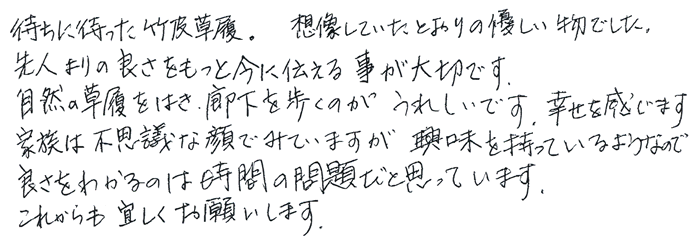 待ちに待った竹皮草履。 想像していたとおりの優しい物でした。
先人よりの良さをもっと今に伝える事が大切です。
自然の草履をはき、廊下を歩くのが うれしいです。幸せを感じます
家族は不思議な顔でみていますが 興味を持っているようなので
良さをわかるのは時間の問題だと思っています。
これからも宜しくお願いします。